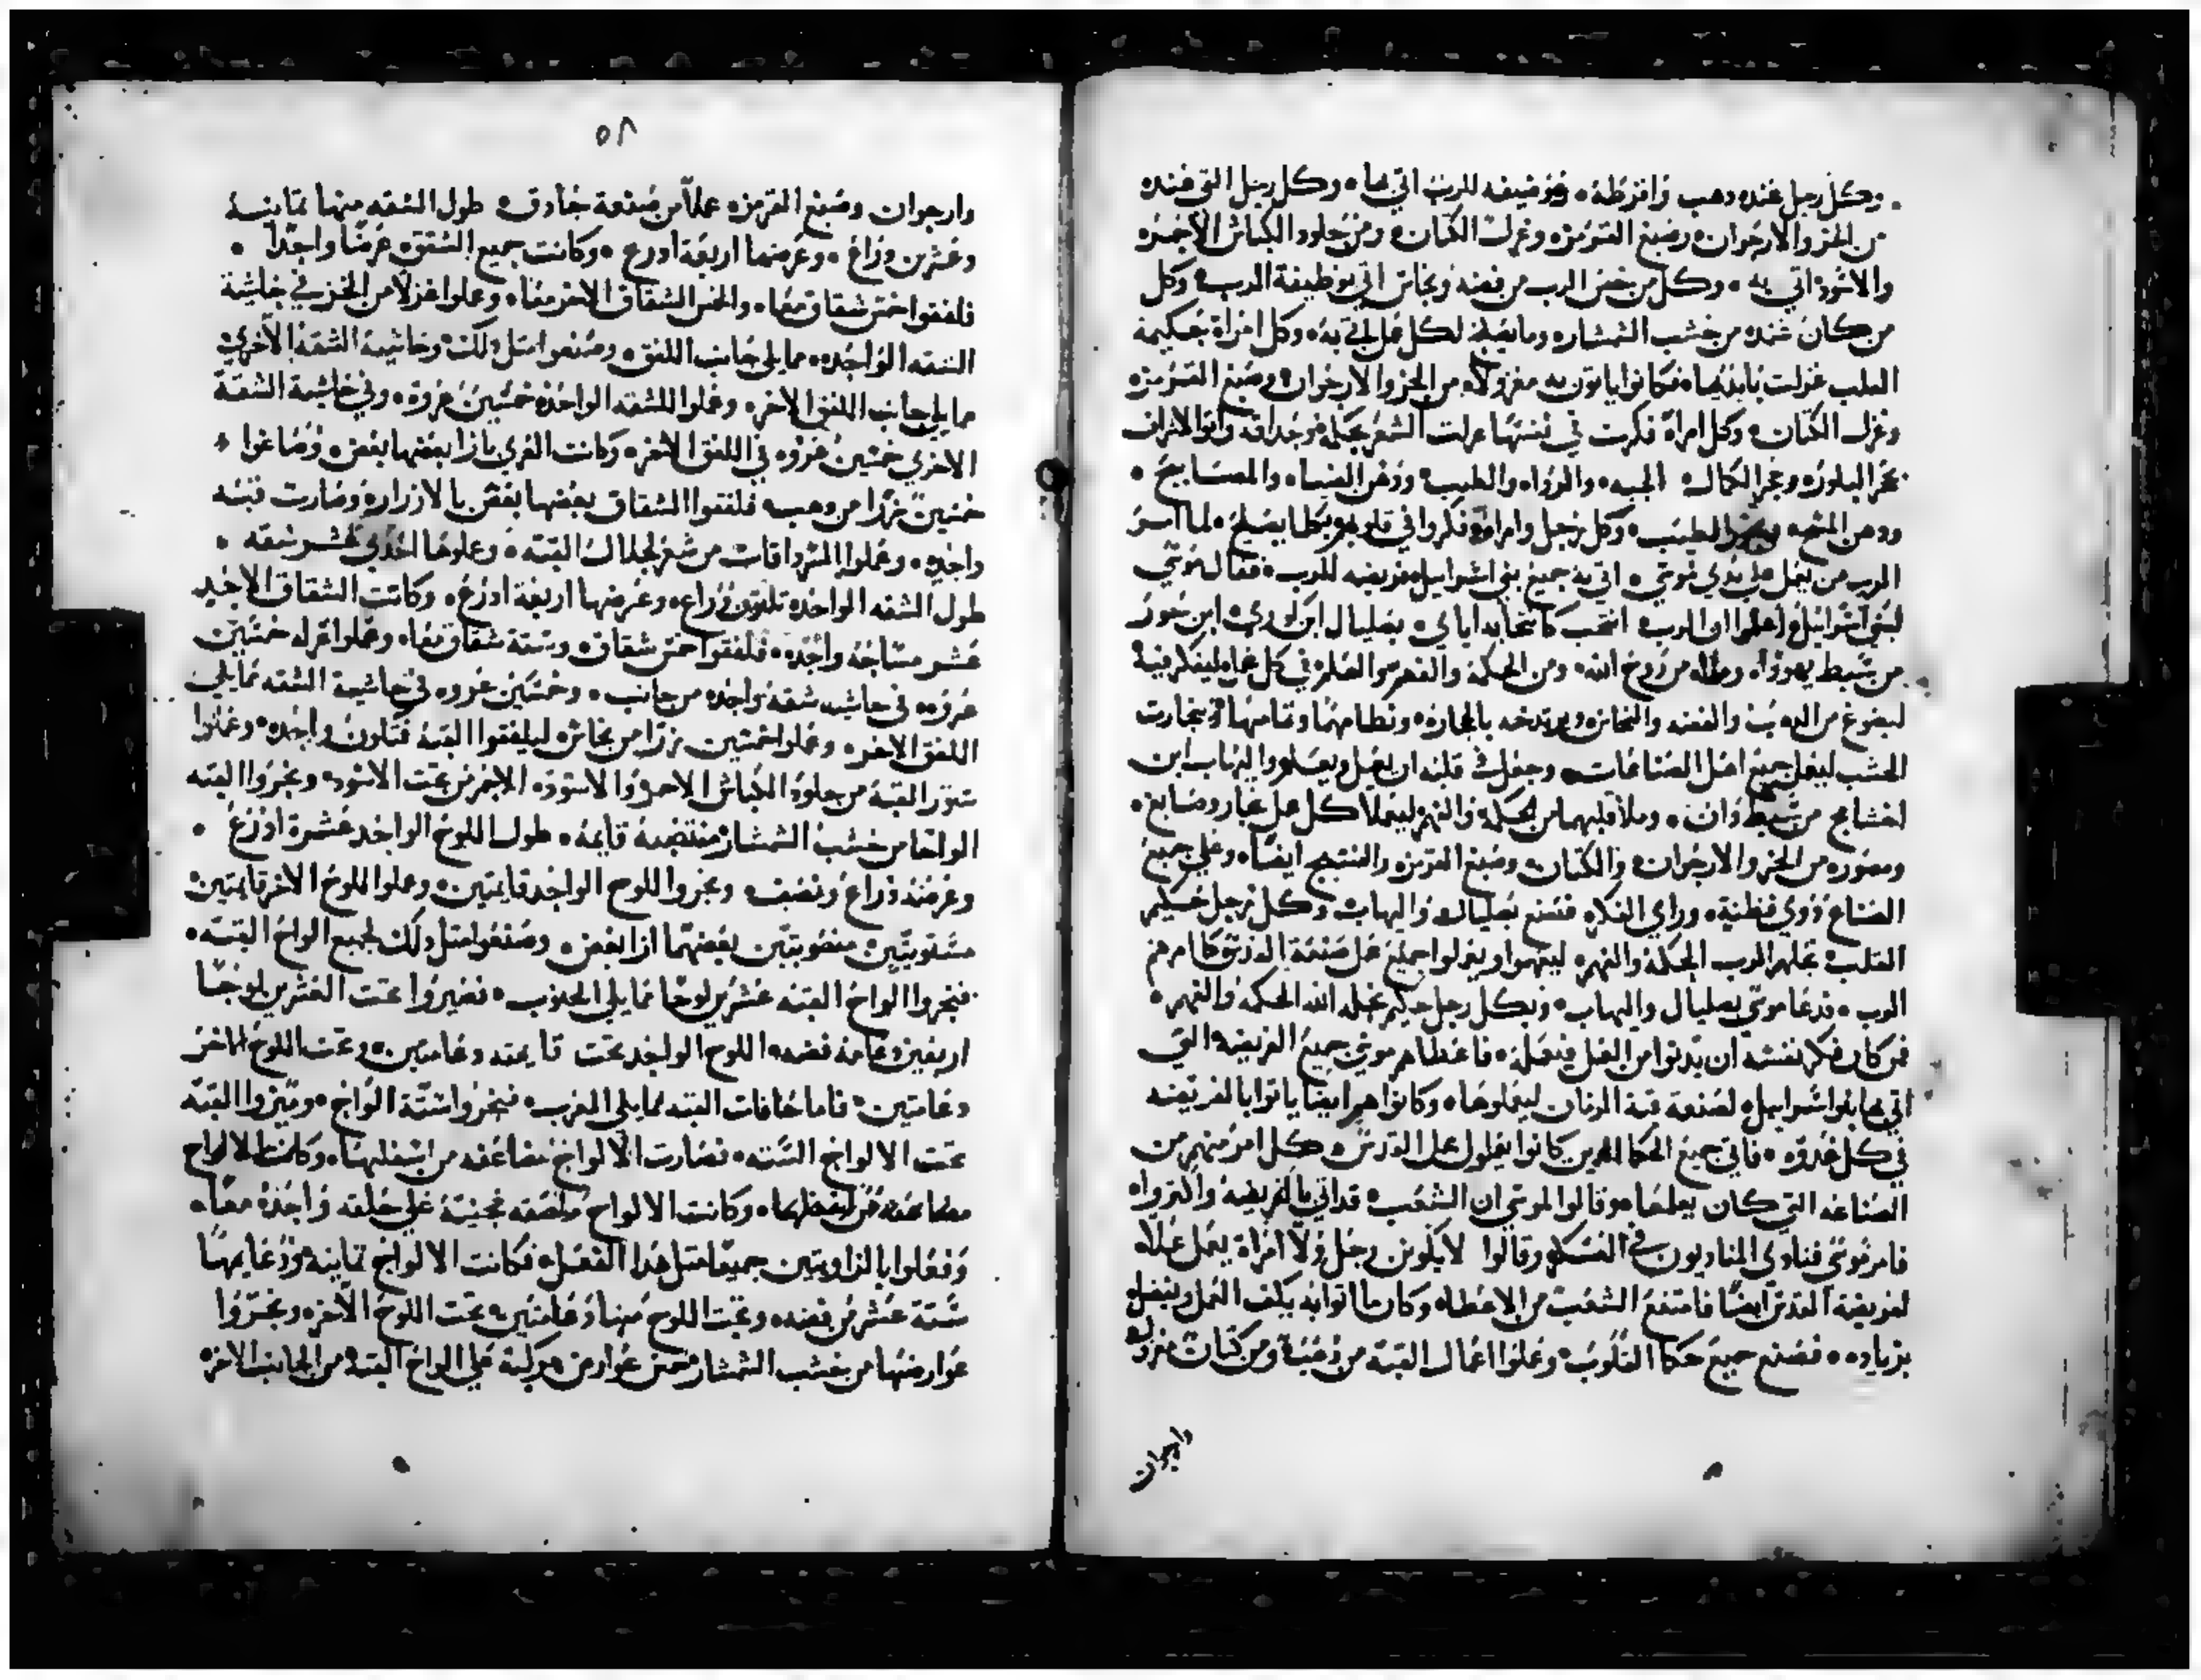 وكل رجل عنده دهب وافرظه • فوضيفه للرب اتي بها • وكل رجل التقي عنده
من الخز والارجوان وصبغ القرمز وغزل الكتان ومن جلود الكباش الاحمره
والاسود اتي به • وكل من خص الرب من فضه ونحاس اتي بوظيفة الرب وكل
من كان عنده من خشب الشمشار وما يصلح لكل عمل اتي به • وكل امراة حكيمة
القلب غزلت بايديها • فكانوا ياتون به مغزولا • من الخز والارجوان وصبغ القرمز
وغزل الكتان • وكل امراة فكرت في نفسها غزلت الشعر واتوا الاشراف
بحجر البلور وحجر الكمال الجبه • والرداء والطيب ودهن الضياء والمصابيح •
ودهن المسحه الطيب • وكل رجل وامراة فكروا في قلوبهم لما امر
الرب من يعمل علي يدي موسي • اتي به جميع بني اسراييل فريضه للرب • فقال موسي
لبني اسراييل اعلموا ان الرب انتخب بصليال ابن اوري ابن حور
من سبط يهودا • وملاه من روح الله • ومن الحكمة والفهم والعلم في كل عمل
ليصوغ من الدهب والفضه والنحاس بالحجاره • ونظامها وتمامها ونجارت
الخشب ليعمل جميع اعمال الصناعات • وجعل في قلبه ان يعمل ويعلم هو واليهاب ابن
اخشامخ من سبط دان • وملا قلبهما من الحكمة والفهم ليعملا كل عمل نجار وصايغ •
ومصوره من الخز والارجوان والكتان وصبغ القرمز والنسيج ايضا • وعلي جميع
الصناع ذوي فطنة • وراي الفلاه فصنع بصليال واليهاب وكل رجل حكيم
القلب جعل الرب الحكمة والفهم ليفهموا ويعملوا جميع عمل صنعة القدس كما امرهم
الرب • فدعا موسي بصليال واليهاب • وبكل رجل حكيم جعل له الله الحكمة والفهم •
فمن كان فكر نفسه ان يدنوا من العمل فيعمله • فاعطاهم موسي جميع الفريضه التي
اتي بها بنوا اسراييل • لصنعة قبة الزمان ليعملوها • وكانوا هم ايضا ياتوا بالفريضه
في كل غدوه • فاتي جميع الحكما الدين كانوا يعملون عمل القدس كل امر منهم من
الصناعه التي كان يعملها • وقالوا لموسي ان الشعب قد اتي بالفريضة واكتروا
فامر موسي فنادي المناديون في العسكر وقالوا لا يكونن رجل ولا امراة يعمل عملاه
لفريضة القدس ايضا فامتنع الشعب من الاعطاء وكان ما اتوا به يكف العمل ويفضل
بزياده • فصنع جميع حكما القلوب وعملوا اعمال القبة من دهب ومن كتان مغزول
وارجوان
٥٨
وارجوان وصبغ القرمز عملا من صنعة حادق • طول الشقه منها تمانيه
وعشرين دراع • وعرضها اربعة ادرع • وكانت جميع الشقق عرضا واحدا •
فلفقوا خمس شقاق معا • والخمس الشقاق الاخر معا • وعملوا غزلا من الخز في حاشية
الشقه الواحده • مما يلي جانب اللفق • وصنعوا متل دلك وحاشية الشقة الاخري
مما يلي جانب اللفق الاخر • وعملوا للشقه الواحده خمسين عروة • وفي حاشية الشقة
الاخري خمسين عروه في اللفق الاخر • وكانت العري بازا بعضها بعض وصاغوا •
خمسين زرا من دهب • فلفقوا الشقاق بعضها بعض بالازرار • وصارت قبه
واحده • وعملوا المترداقات من شعر لجلال القبه • وعلوها احدي عشر شقه •
طول الشقه الواحده تلتون دراع • وعرضها اربعة ادرع • وكانت الشقاق الاحد
عشر مساحه واحده • فلفقوا خمس شقاق وستة شقاق معا • وعملوا غزله خمسين
عروه • في حاشيه شقه واحده من جانب • وخمسين عروه في حاشية الشقه مما يلي
اللفق الاخر • وعملوا خمسين زرا من نحاس ليلفقوا القبة فتكون واحده • وعملوا
ستور القبة من جلود الكباش الاحمر والاسود • الاحمر من تحت الاسود • ونجروا القبه
الواحا من خشب الشمشار منتصبة قايمة • طول اللوح الواحد عشرة ادرع •
وعرضه دراع ونصف ونجروا للوح الواحد قايمتين • وعملوا للوح الاخر قايمتين
مستويتين منصوبتين بعضهما ازا بعض • وصنعوا متل دلك لجميع الواح القبه •
فنجروا الواح القبه عشرين لوحا مما يلي الجنوب • فصيروا تحت العشرين لوحا
اربعين دعامة فضه • اللوح الواحد تحت قايمته دعامتين • وتحت اللوح الاخر
دعامتين • فاما حافات القبه مما يلي المغرب • فنجروا ستة الواح • وميزوا القبه
تحت الالواح السته • فصارت الالواح مضاعفه من اسفلها • وكانت الالواح
مضاعفه من اسفلها • وكانت الالواح ملصقه علي حلقه واحده معا •
وفعلوا بالزاويتين جميعا متل هدا الفعل • فكانت الالواح تمانية ودعايمها
ستة عشر من فضه • وتحت اللوح منها دعامتين تحت اللوح الاخر • ونجروا
عوارضها من خشب الشمشار خمس عوارض مركبة علي الواح القبه من الجانب الاخر